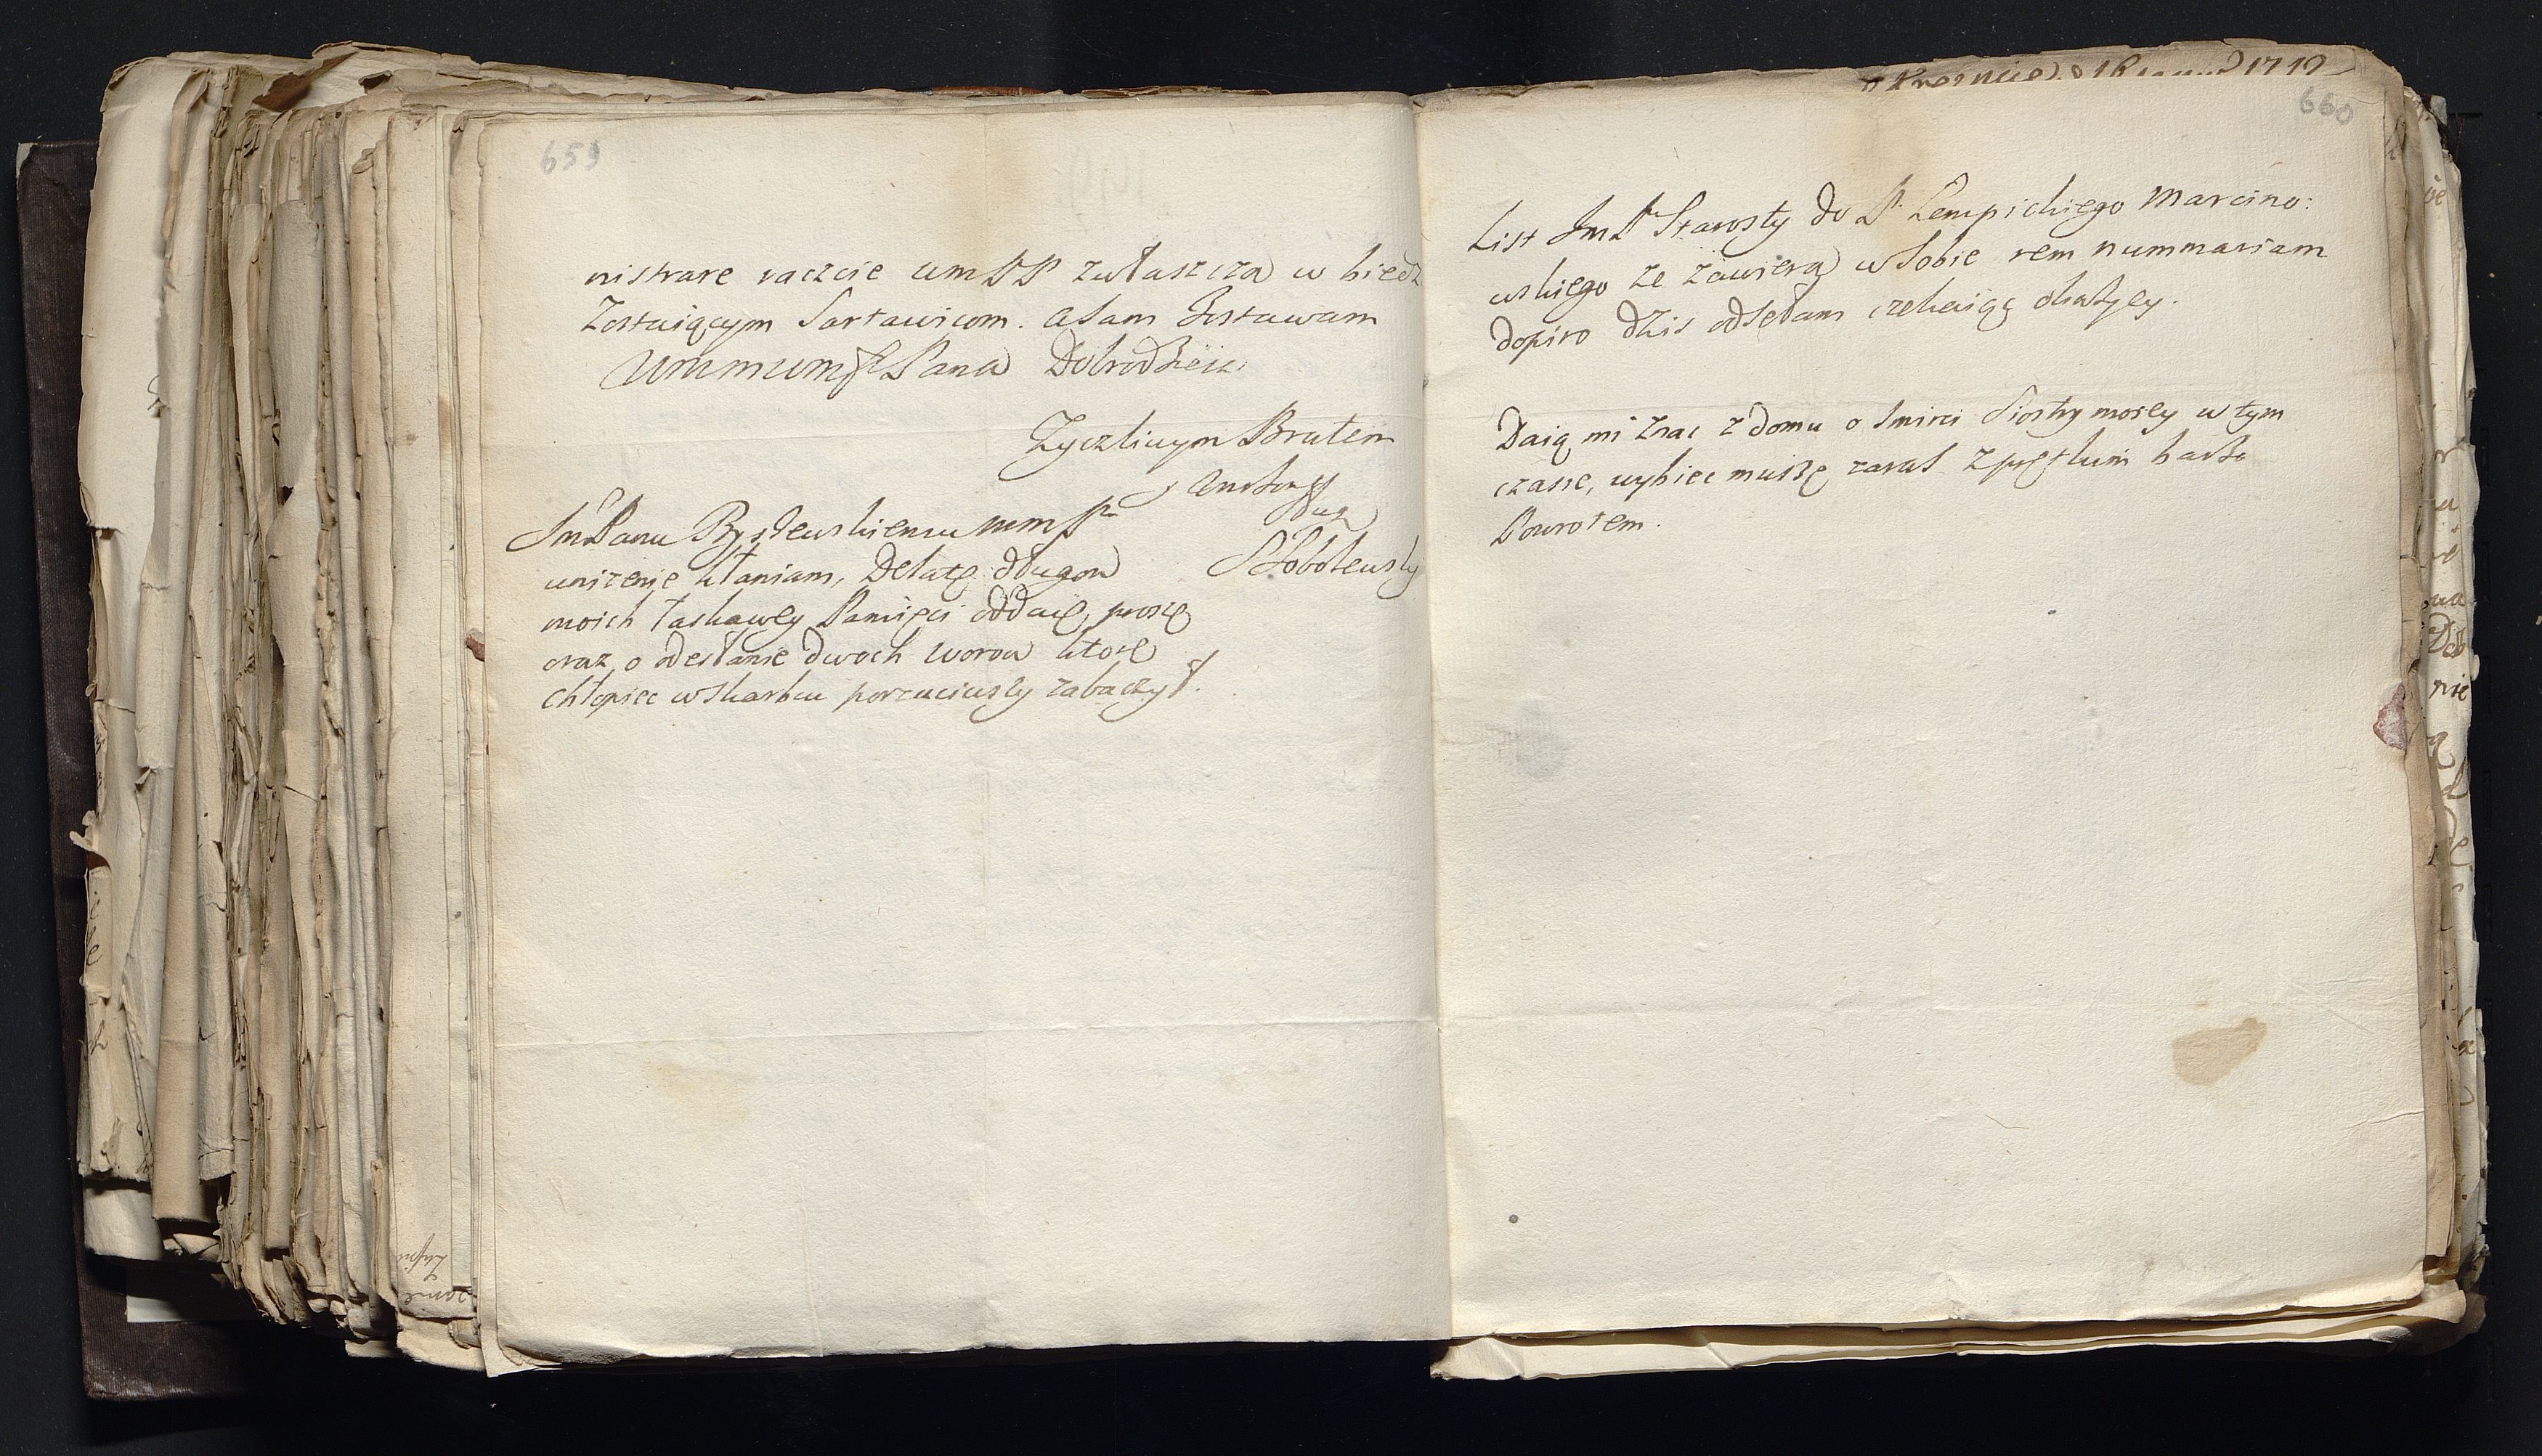 659
nistrare raczcie umPP zwłaszcza w biedz
Zostaiącym Sartawicom. a Sam Zostawam
UmmmmP Pana Dobrodzieia
Zyczliwym Bratem
y
Sług
SSobolewsky
Jm Panu Bystewskiemu mmP
unizenie kłaniam, Delatę długow
moich łaskawey Pamięci oddaię, proszę
oraz o odesłanie dwoch worow ktore
chłopiec w Skarbcu porzuciwszy zabaczył.
1719
660
List JmP Starosty do P. Lempickiego Marcino:
wskiego ze zawiera w Sobie rem nummariam
dopiro dzis odsełam czekaiąc okazyey.
Daią mi znac z domu o Smirci Siostry moiey w tym
czasie, wybiec muszę zaraz z prętkim barzo
Powrotem.